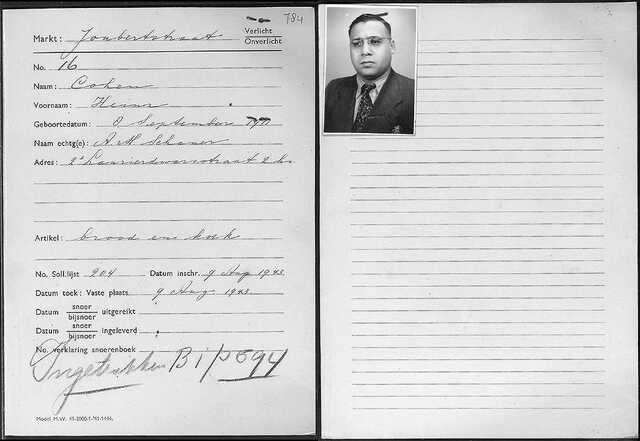 784
Markt: Joubertstraat Verlicht
Onverlicht
No. 16
Naam: Cohen
Voornaam:
Geboortedatum: 8 September
Naam echtg(e): A. M
Adres: 2e Laurierdwarsstraat 2 hs
Artikel: brood en koek
No. Soll.lijst 204 Datum inschr. 9 Aug 1943
Datum toek: Vaste plaats 9 Aug. 1943.
Datum snoer
bijsnoer uitgereikt
Datum snoer
bijsnoer ingeleverd
No. verklaring snoerenboek
Ingetrokken
Model M.W.